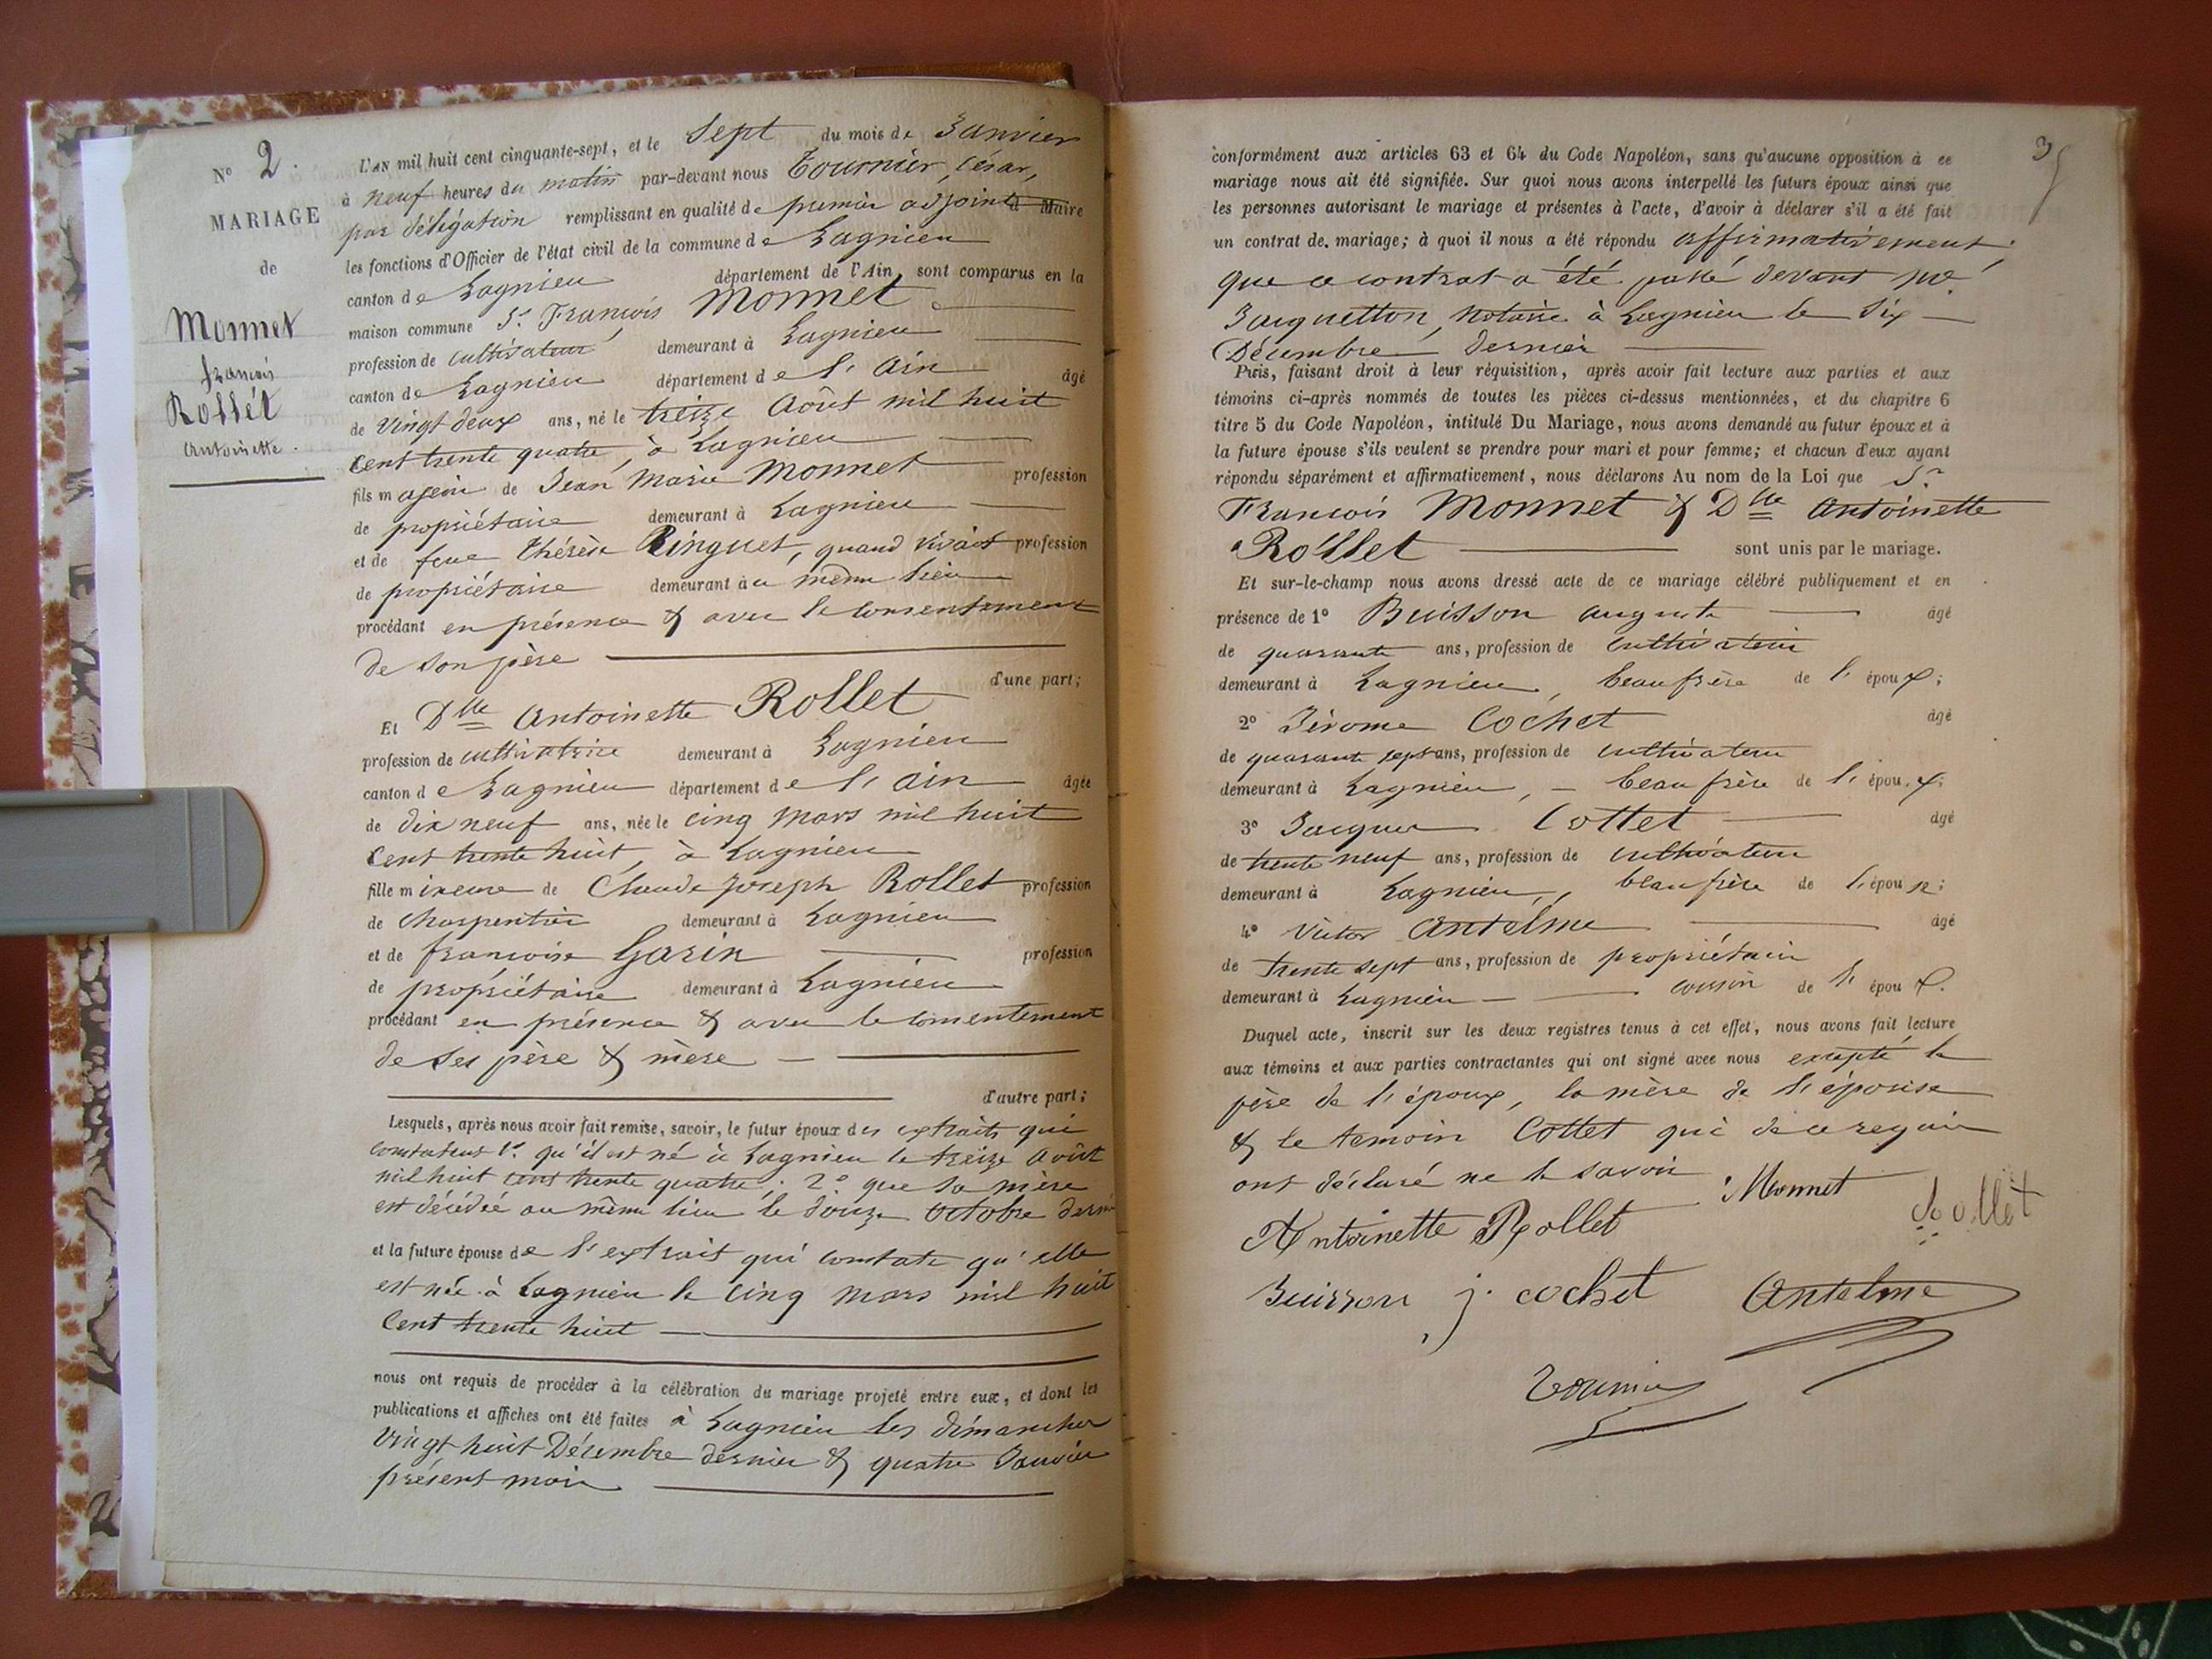 N° 2.
MARIAGE
de
Monnet
françois
Rollet
Antoinette.
L'AN mil huit cent cinquante-sept, et le Sept du mois de Janvier
à neuf heures du matin par-devant nous Tournier, César,
par délégation remplissant en qualité de premier adjoint Maire
les fonctions d'Officier de l'état civil de la commune de Lagnieu
canton de Lagnieu département de l'Ain, sont comparus en la
maison commune Sr. François Monnet
profession de cultivateur demeurant à Lagnieu
canton de Lagnieu département de l'Ain âgé
de vingt deux ans, né le treize Août mil huit
cent trente quatre, à Lagnieu
fils majeur de Jean Marie Monnet profession
de propriétaire demeurant à Lagnieu
et de feue Thérèse Ringuet, quand vivait profession
de propriétaire demeurant au même lieu
procédant en présence & avec le consentement
de son père
d'une part;
Et Dlle Antoinette Rollet
profession de cultivatrice demeurant à Lagnieu
canton de Lagnieu département de l'Ain âgée
de dix neuf ans, née le cinq Mars mil huit
cent trente huit, à Lagnieu
fille mineure de Claude Joseph Rollet profession
de charpentier demeurant à Lagnieu
et de françoise Garin profession
de propriétaire demeurant à Lagnieu
procédant en présence & avec le consentement
de ses père & mère
d'autre part;
Lesquels, après nous avoir fait remise, savoir, le futur époux des extraits qui
constatent 1°. qu'il est né à Lagnieu le treize août
mil huit cent trente quatre; 2° que sa mère
est décédée au même lieu le douze octobre dernier
et la future épouse de l'extrait qui constate qu'elle
est née à Lagnieu le cinq Mars mil huit
cent trente huit
nous ont requis de procéder à la célébration du mariage projeté entre eux, et dont les
publications et affiches ont été faites à Lagnieu les dimanches
vingt huit Décembre dernier & quatre Janvier
présent mois
3
conformément aux articles 63 et 64 du Code Napoléon, sans qu'aucune opposition à ce
mariage nous ait été signifiée. Sur quoi nous avons interpellé les futurs époux ainsi que
les personnes autorisant le mariage et présentes à l'acte, d'avoir à déclarer s'il a été fait
un contrat de mariage; à quoi il nous a été répondu affirmativement;
que ce contrat a été passé devant Me
notaire à Lagnieu le six
Décembre dernier
Puis, faisant droit à leur réquisition, après avoir fait lecture aux parties et aux
témoins ci-après nommés de toutes les pièces ci-dessus mentionnées, et du chapitre 6
titre 5 du Code Napoléon, intitulé Du Mariage, nous avons demandé au futur époux et à
la future épouse s'ils veulent se prendre pour mari et pour femme; et chacun d'eux ayant
répondu séparément et affirmativement, nous déclarons Au nom de la Loi que Sr.
François Monnet & Dlle Antoinette
Rollet sont unis par le mariage.
Et sur-le-champ nous avons dressé acte de ce mariage célébré publiquement et en
présence de 1° Buisson auguste âgé
de quarante ans, profession de cultivateur
demeurant à Lagnieu, beau frère de l'époux;
2° Jérome Cochet âgé
de quarante sept ans, profession de cultivateur
demeurant à Lagnieu, beau frère de l'époux;
3° Jacques Cottet âgé
de trente neuf ans, profession de cultivateur
demeurant à Lagnieu, beau frère de l'époux;
4° Victor Antelme âgé
de trente sept ans, profession de propriétaire
demeurant à Lagnieu cousin de l'époux.
Duquel acte, inscrit sur les deux registres tenus à cet effet, nous avons fait lecture
aux témoins et aux parties contractantes qui ont signé avec nous excepté le
père de l'époux, la mère de l'épouse
& le témoin Cottet qui de ce requis
ont déclaré ne le savoir Monnet
Antoinette Rollet Rollet
Buisson j. cochet Antelme
Tournier